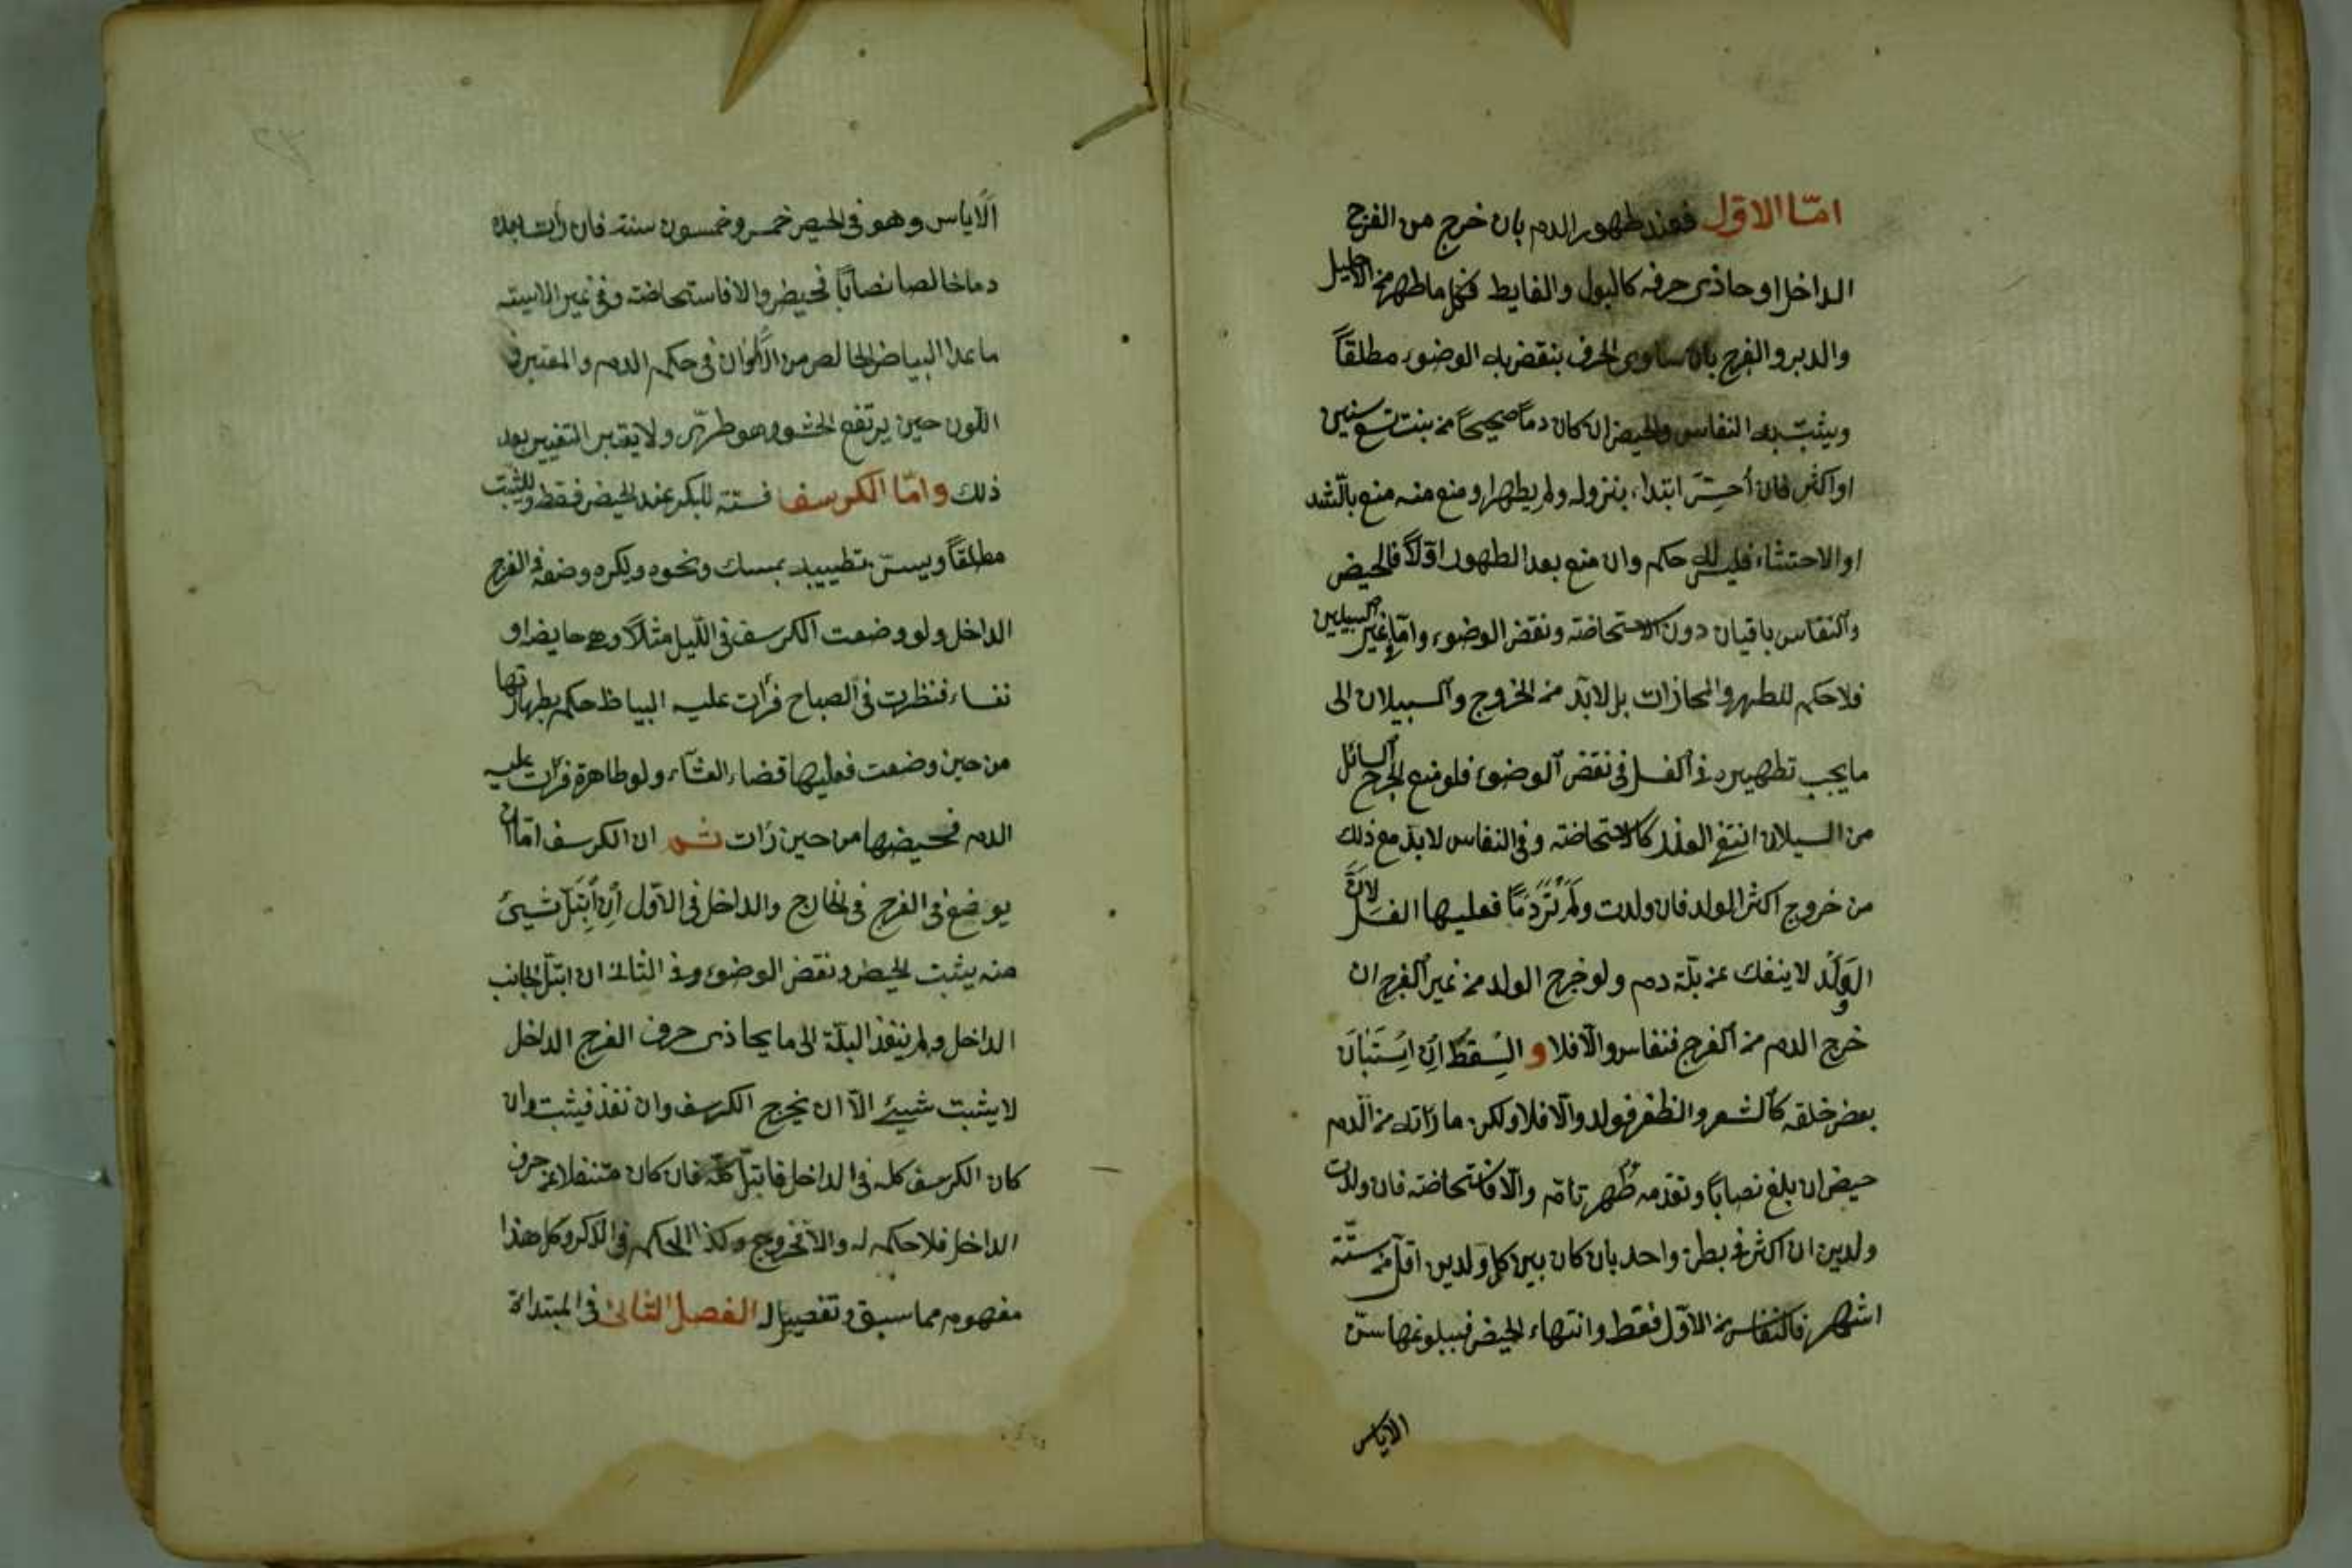 امّا الاوّل فعند ظهور الدم بان خرج من الفرج
الداخل او حاذى حرفه كالبول والغايط فكل ما ظهر من الاحليل
والدبر والفرج بان ساوى الحرف ينقض به الوضوء مطلقاً
ويثبت به النفاس والحيض ان كان دماً صحيحاً من بنت تسع سنين
او اكثر فان أحسّ ابتداء بنزوله ولم يظهر او منع منه منع بالشد
او الاحتشاء فليس له حكم وان منع بعد الظهور اوّلاً فالحيض
والنفاس باقيان دون الاستحاضة ونقض الوضوء وامّا فى غير السبيلين
فلا حكم للظهور والمحاذات بل لا بدّ من الخروج والسيلان الى
ما يجب تطهيره فى الغسل فى نقض الوضوء فلو منع الجرح السائل
من السيلان انتفى العذر كالاستحاضة وفى النفاس لا بد مع ذلك
من خروج اكثر الولد فان ولدت ولم تر دمًا فعليها الغسل لانّ
الولد لا ينفك عن بلّة دم ولو خرج الولد من غير الفرج ان
خرج الدم من الفرج فنفاس والّا فلا و السقط ان استبان
بعض خلقه كالشعر والظفر فولد والّا فلا ولكن ما رأته من الدم
حيض ان بلغ نصاباً وتقدمه طهر تامّ والّا فاستحاضة فان ولدت
ولدين او اكثر فى بطن واحد بان كان بين كل ولدين اقل من ستّة
اشهر فالنفاس من الاوّل فقط وانتهاء الحيض فببلوغها سنّ
الاياس
الاياس وهو فى الحيض خمس وخمسون سنة فان رأت بعده
دما خالصا نصاباً فحيض والا فاستحاضة وفى غير الايسة
ما عدا البياض الخالص من الالوان فى حكم الدم والمعتبر فى
اللون حين يرتفع الحشو وهو طرىّ ولا يعتبر التغيير بعد
ذلك وامّا الكرسف فسنّة للبكر عند الحيض فقط وللثيّب
مطلقاً ويسنّ تطييبه بمسك ونحوه ويكره وضعه فى الفرج
الداخل ولو وضعت الكرسف فى الليل مثلاً وهى حايض او
نفساء فنظرت فى الصباح فرأت عليه البياض حكم بطهارتها
من حين وضعت فعليها قضاء العشاء ولو طاهرة فرأت عليه
الدم فحيضها من حين رأت ثم ان الكرسف امّا ان
يوضع فى الفرج فى الخارج والداخل فى الاوّل ان ابتلّ شيئ
منه يثبت الحيض ونقض الوضوء وفى الثانى ان ابتلّ الجانب
الداخل ولم ينفذ البلّة الى ما يحاذى حرف الفرج الداخل
لا يثبت شيئ الّا ان يخرج الكرسف وان نفذ فيثبت وان
كان الكرسف كله فى الداخل فابتلّ كلّه فان كان متسفلا عن حرف
الداخل فلا حكم له والا فخروج وكذا الحكم فى الذكر وكل هذا
مفهوم مما سبق وتفصيل له الفصل الثانى فى المبتدأة